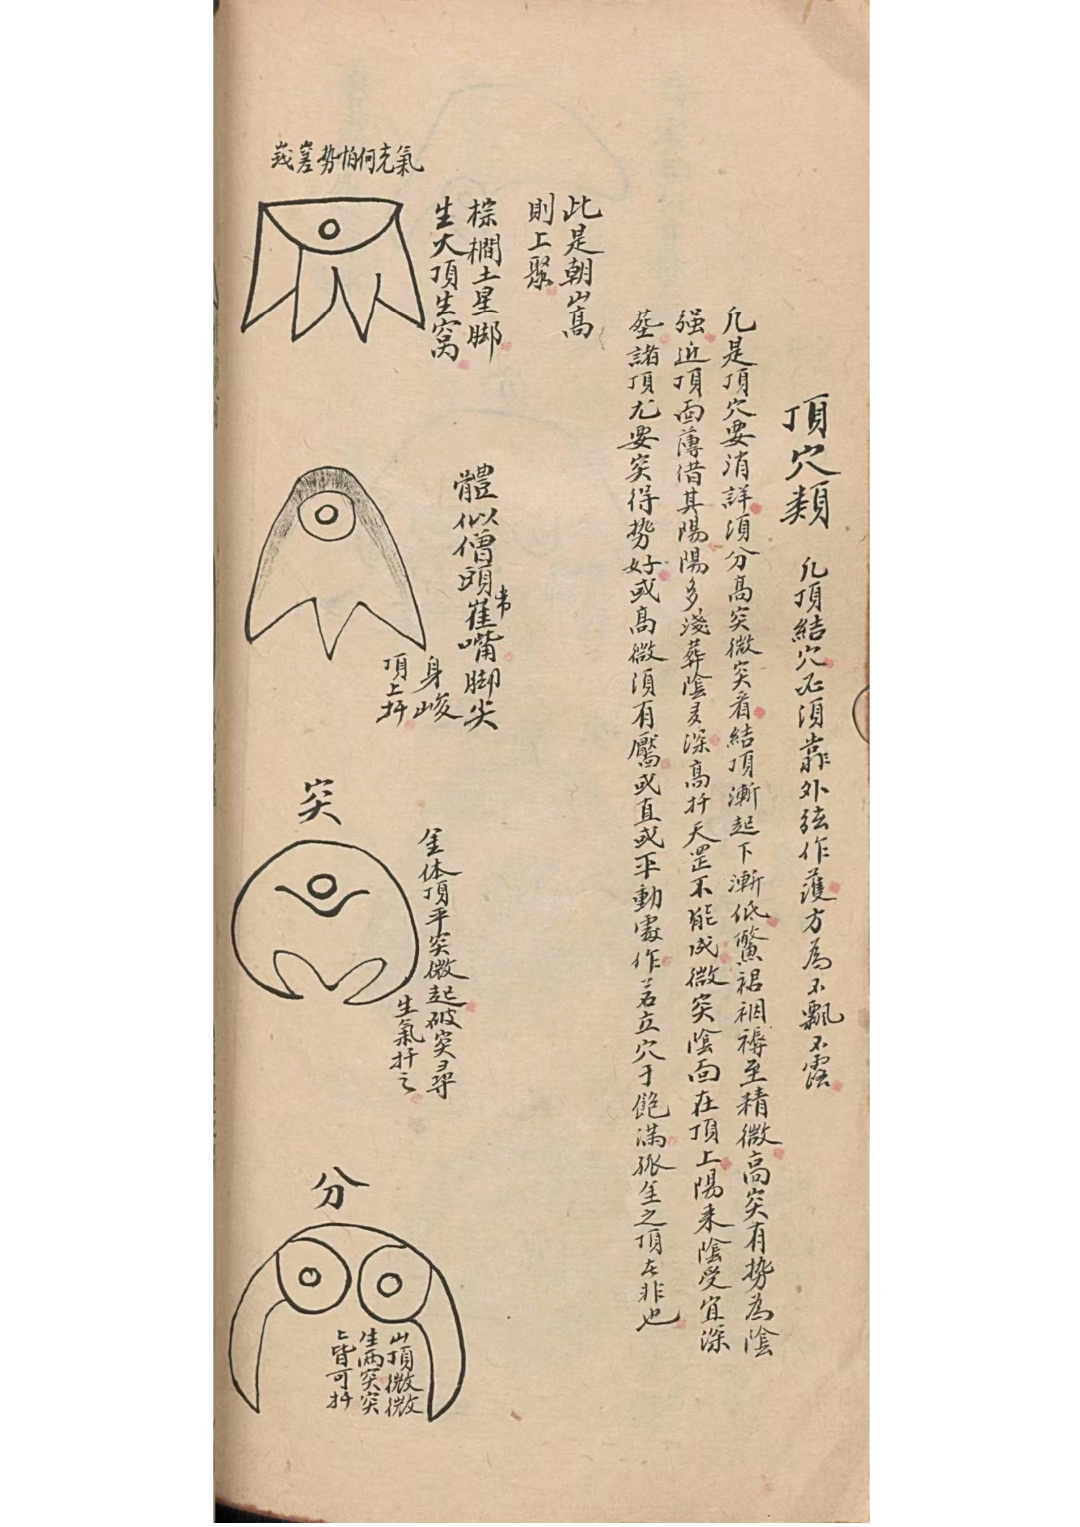 頂穴類
凡頂結穴必須靠外弦作護方為不飄不露
凡是頂穴要消詳須分高突微突看結頂漸起下漸低鱉裙裀褥至精微高突有勢為陰
强近頂面薄借其陽陽多淺葬陰多深高扦天罡不能成微突陰面在頂上陽来陰受宜深
塟諸頂尤要突得勢好或高微須有靨或直或平動處作若立穴于飽滿孤金之頂大非也
此是朝山高
則上聚
棕櫚土星脚
生大頂生窝
峩嵳势怕何克氣
體似僧頭雀嘴脚尖
身峻
頂上扦
突
金体頂平突微起破突尋
生氣扦之
分
山頂微微
生两突突
上皆可扦